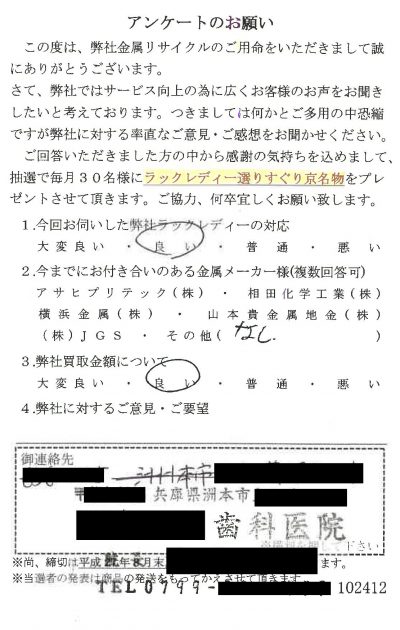 アンケートのお願い
この度は、弊社金属リサイクルのご用命をいただきまして誠
にありがとうございます。
さて、弊社ではサービス向上の為に広くお客様のお声をお聞き
したいと考えております。つきましては何かとご多用の中恐縮
ですが弊社に対する率直なご意見・ご感想をお聞かせください。
ご回答いただきました方の中から感謝の気持ちを込めまして、
抽選で毎月30名様にラックレディー選りすぐり京名物をプレ
ゼントさせて頂きます。ご協力、何卒宜しくお願い致します。
1.今回お伺いした弊社ラックレディーの対応
大変良い ・ 良い ・ 普通 ・ 悪い
2.今までにお付き合いのある金属メーカー様(複数回答可)
アサヒプリテック(株) ・ 相田化学工業(株)
横浜金属(株) ・ 山本貴金属地金(株)
(株)JGS ・ その他( なし )
3.弊社買取金額について
大変良い ・ 良い ・ 普通 ・ 悪い
4.弊社に対するご意見・ご要望
御連絡先
洲本市
兵庫県洲本市
歯科医院
下さい
※尚、締切は平成 年8月末 ます。
※当選者の発表は商品の発送をもってかえさせて頂きます。
TEL0799- 102412